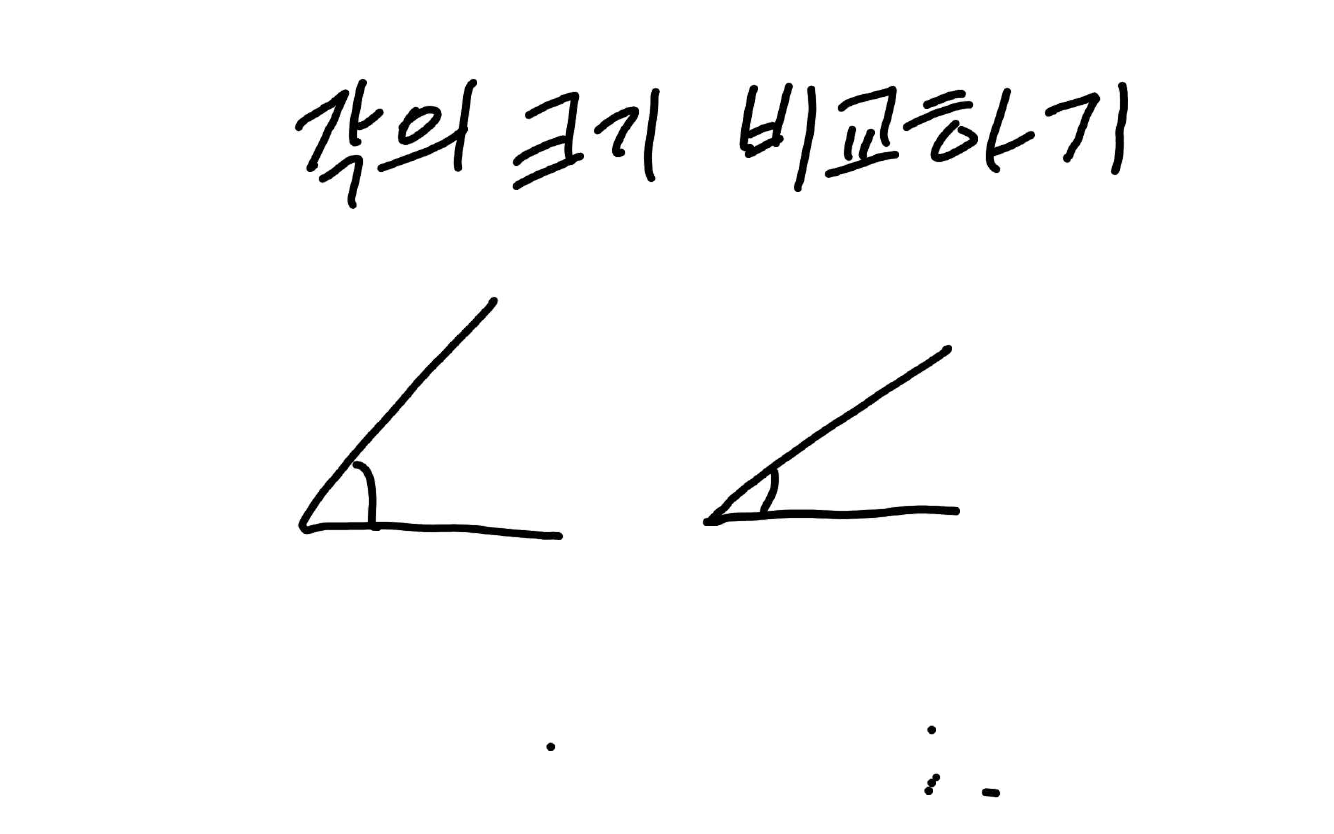 각의 크기 비교하기